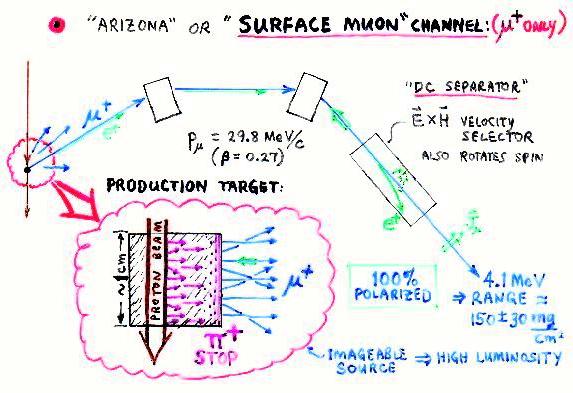 "ARIZONA" OR "SURFACE MUON" CHANNEL: (μ+ ONLY)
μ+
e+
Pμ = 29.8 MeV/c
(β = 0.27)
"DC SEPARATOR"
E⃗ x H⃗ VELOCITY
SELECTOR
ALSO ROTATES SPIN
e+
PRODUCTION TARGET:
~1cm
PROTON BEAM
μ+
π+
STOP
100%
POLARIZED
4.1 MeV
⇒ RANGE ≈
150±30 mg/cm²
IMAGEABLE
SOURCE ⇒ HIGH LUMINOSITY